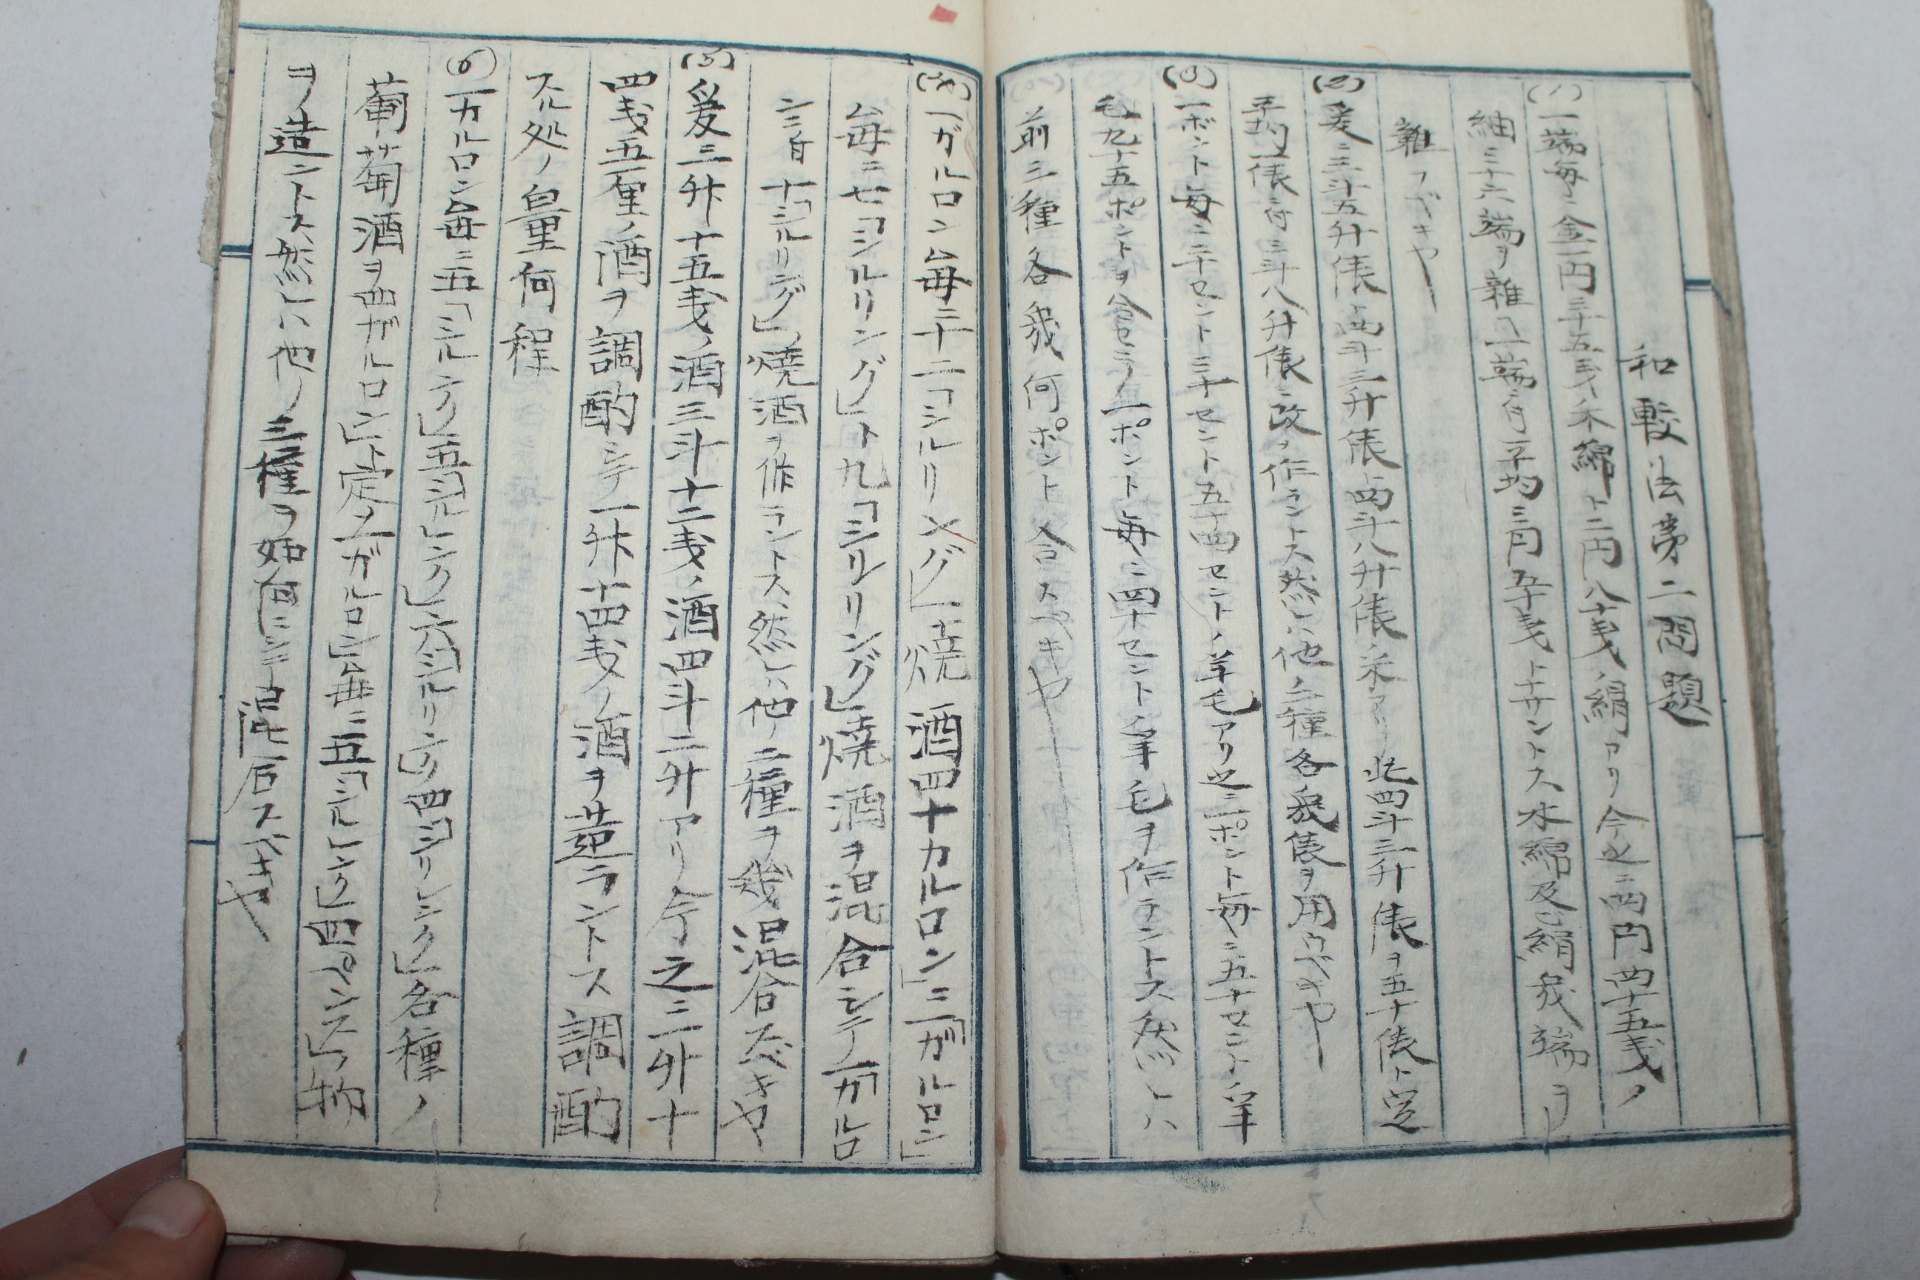 和較法第二問題
(1) 一端毎ニ金一円三十五戋ノ木綿ト二円八十戋ノ絹アリ今之ニ四円四十五戋ノ
紬三十六端ヲ雑ヘ一端ニ付平均三円五十戋トナサントス木綿及ヒ絹幾端ヲ
雑ユベキヤ
(2) 爰ニ三斗五升俵ト四斗三升俵ト四斗八升俵ノ米アリ此四斗三升俵ヲ五十俵ト定
平均一俵ニ付三斗八升俵ニ改メ作ラントス然レハ他ノ二種各幾俵ヲ用ウベキヤ
(3) 一ポント毎ニ二十セント三十セント五十四セントノ羊毛アリ之ニポント毎ニ五十セントノ羊
毛九十五ポントヲ合セテ一ポント毎ニ四十セントノ羊毛ヲ作ラントス然レハ
前三種各幾何ポント合スベキヤ
(4) 一ガルロン毎ニ十二「シルリング」ノ焼酒四十カルロン」ニ「ガルロン」
毎ニ七「シルリング」ト九「シルリング」ノ焼酒ヲ混合シテ一「ガルロ
ンニ付十「シルリング」ノ焼酒ヲ作ラントス然レハ他ノ二種ヲ幾混合スベキヤ
(5) 爰ニ三升十五戋ノ酒三斗十二戋ノ酒四斗二升アリ今之ニ升十
四戋五厘ノ酒ヲ調酌シテ一升十四戋ノ酒ヲ造ラントス調酌
スル処ノ白量何程
(6) 一カルロン毎ニ五「シルリング」五「シルレンク」六「シルリング」四「シリレンク」各種ノ
葡萄酒ヲ四ガルロン」ト定メ一ガルロン」毎ニ五「シルレンク」四ペンス」ノ物
ヲ造ントス然レハ他ノ三種ヲ如何ニシテ混合スベキヤ